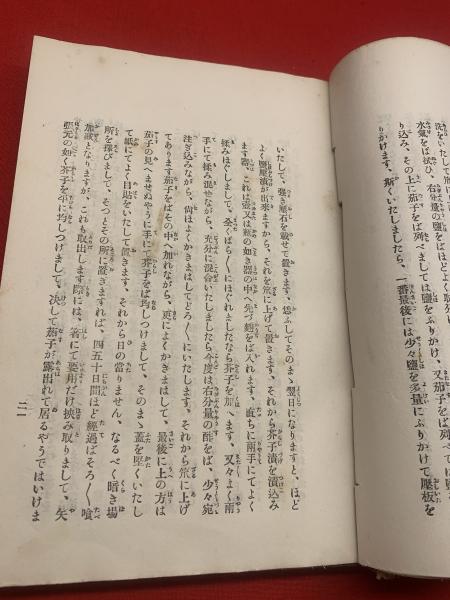 洗をいたして
水氣をば拭ひ、右分量の鹽をばほどよく
り込み、その上に茄子をば列べましては鹽をふりかけ、又茄子を
りかけます、斯くいたしましたら、一番最後には少々鹽を多量にふりかけて壓板を
いたして、强き壓石を載せて置きます、恁ふしてそのまゝ翌日になりますと、ほど
よく鹽壓漬が出來ますから、それを笊に上げて置きます、それから芥子漬を漬込み
ます器、これは壺又は甁の如き器の中へ先づ麹をば入れます、直ちに兩手にてよく
揉みほぐしまして、全くばら〱にほぐれましたなら芥子を加へます、又々よく兩
手にて揉み混ぜながら、充分に混合いたしましたら今度は右分量の酢をば、少々宛
注ぎ込みながら、尙ほよくかきまはしてどろ〱にいたします、それから笊に上げ
てあります茄子をばその中へ加れながら、更によくかきまはして、最後に上の方は
茄子の見へませぬやうに手にて芥子をば均しつけまして、そのまゝ蓋を堅くいたし
て紙にてよく目貼をいたして置きます、それから日の當りません、なるべく暗き場
所を擇びまして、そつとその所に置きますれば、四五十日間ほど經過ばそろ〱喰
加減となりますが、これも取出します際には、箸にて要用だけ挾み取りまして、矢
張元の如く芥子を平に均しつけまして、決して茄子が露出れて居るやうではいけま
二一